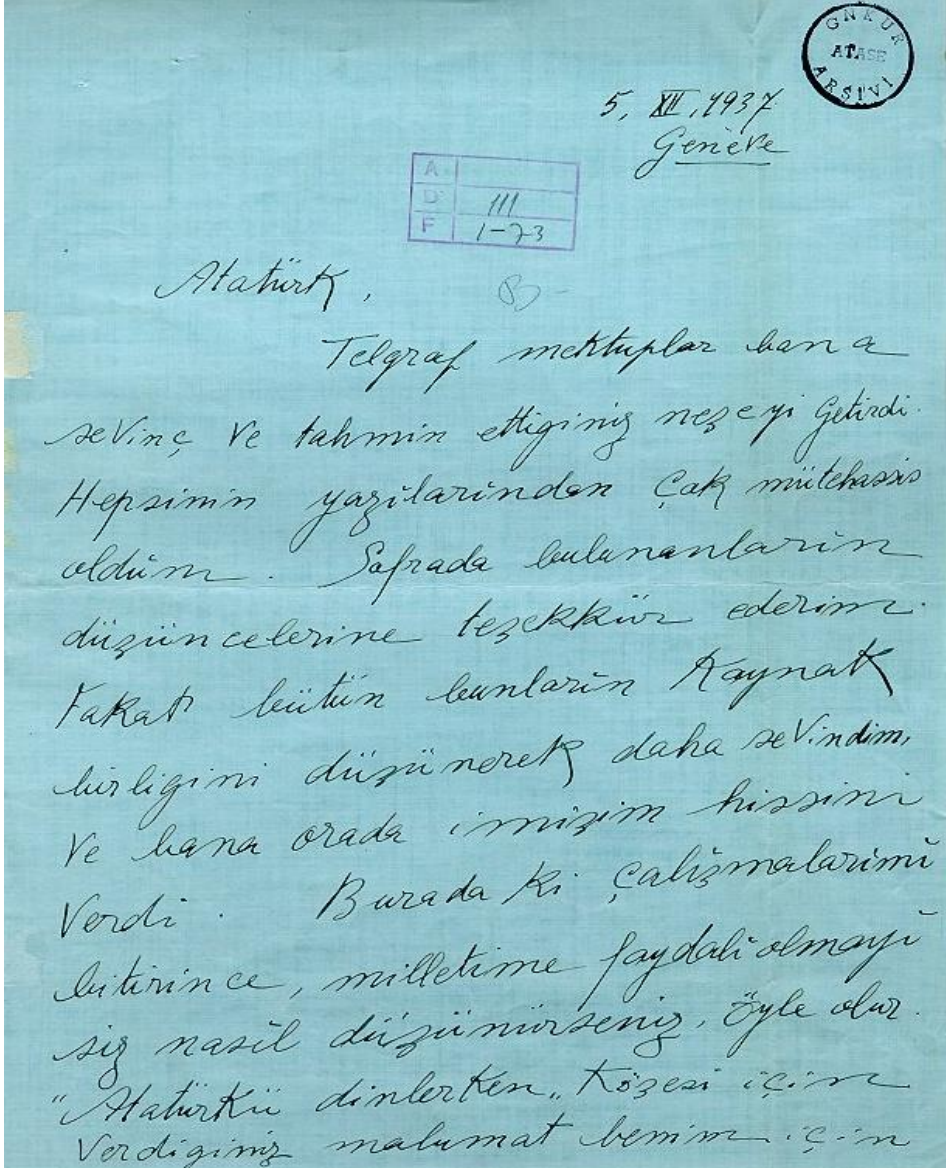 GNKUR
ATASE
ARŞİVİ
5, XII, 1937
Genève
A
D 111
F 1-73
Atatürk,
B-
Telgraf mektuplar bana
sevinç ve tahmin ettiginiz neşeyi getirdi.
Hepsinin yazılarından çok mütehassis
oldum. Sofrada bulunanların
düşüncelerine teşekkür ederim.
Fakat bütün bunların kaynak
birligini düşünerek daha sevindim,
ve bana orada imişim hissini
verdi. Burada ki çalışmalarımı
bitirince, milletime faydalı olmayı
siz nasıl düşünürseniz, öyle olur.
"Atatürkü dinlerken„ köşesi için
verdiginiz malumat benim için